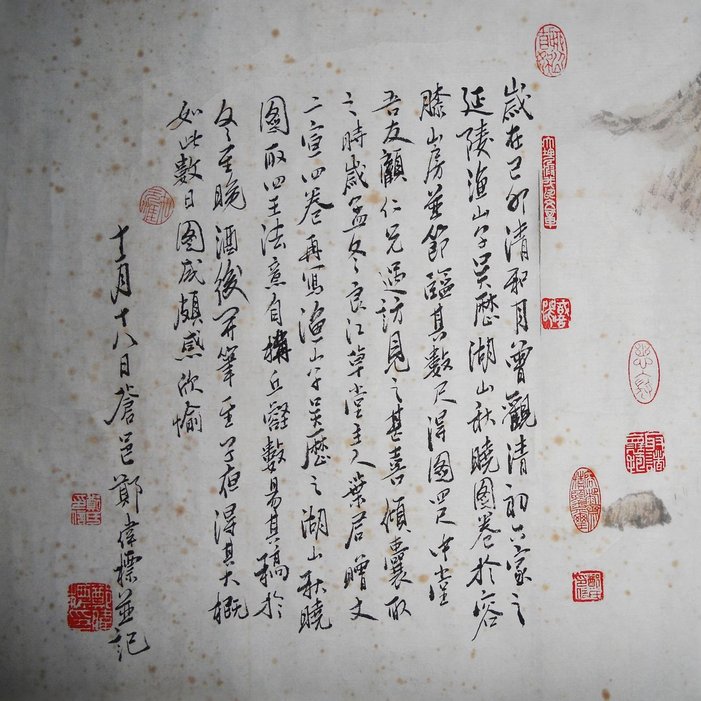 歲在己卯清和月曾觀清初六家之
延陵漁山子吳歷湖山秋曉圖卷於容
膝山房並節臨其數尺得圖四尺中堂
吾友顧仁兄過訪見之甚喜傾囊取
之時歲孟冬良江草堂主人葉君贈文
二宣四卷再寫漁山子吳歷之湖山秋曉
圖取四王法意自構丘壑數易其稿於
冬至晚酒後開筆至子夜得其大概
如此數日圖成頗感欣愉
十二月十八日蒼邑鄭偉標並記